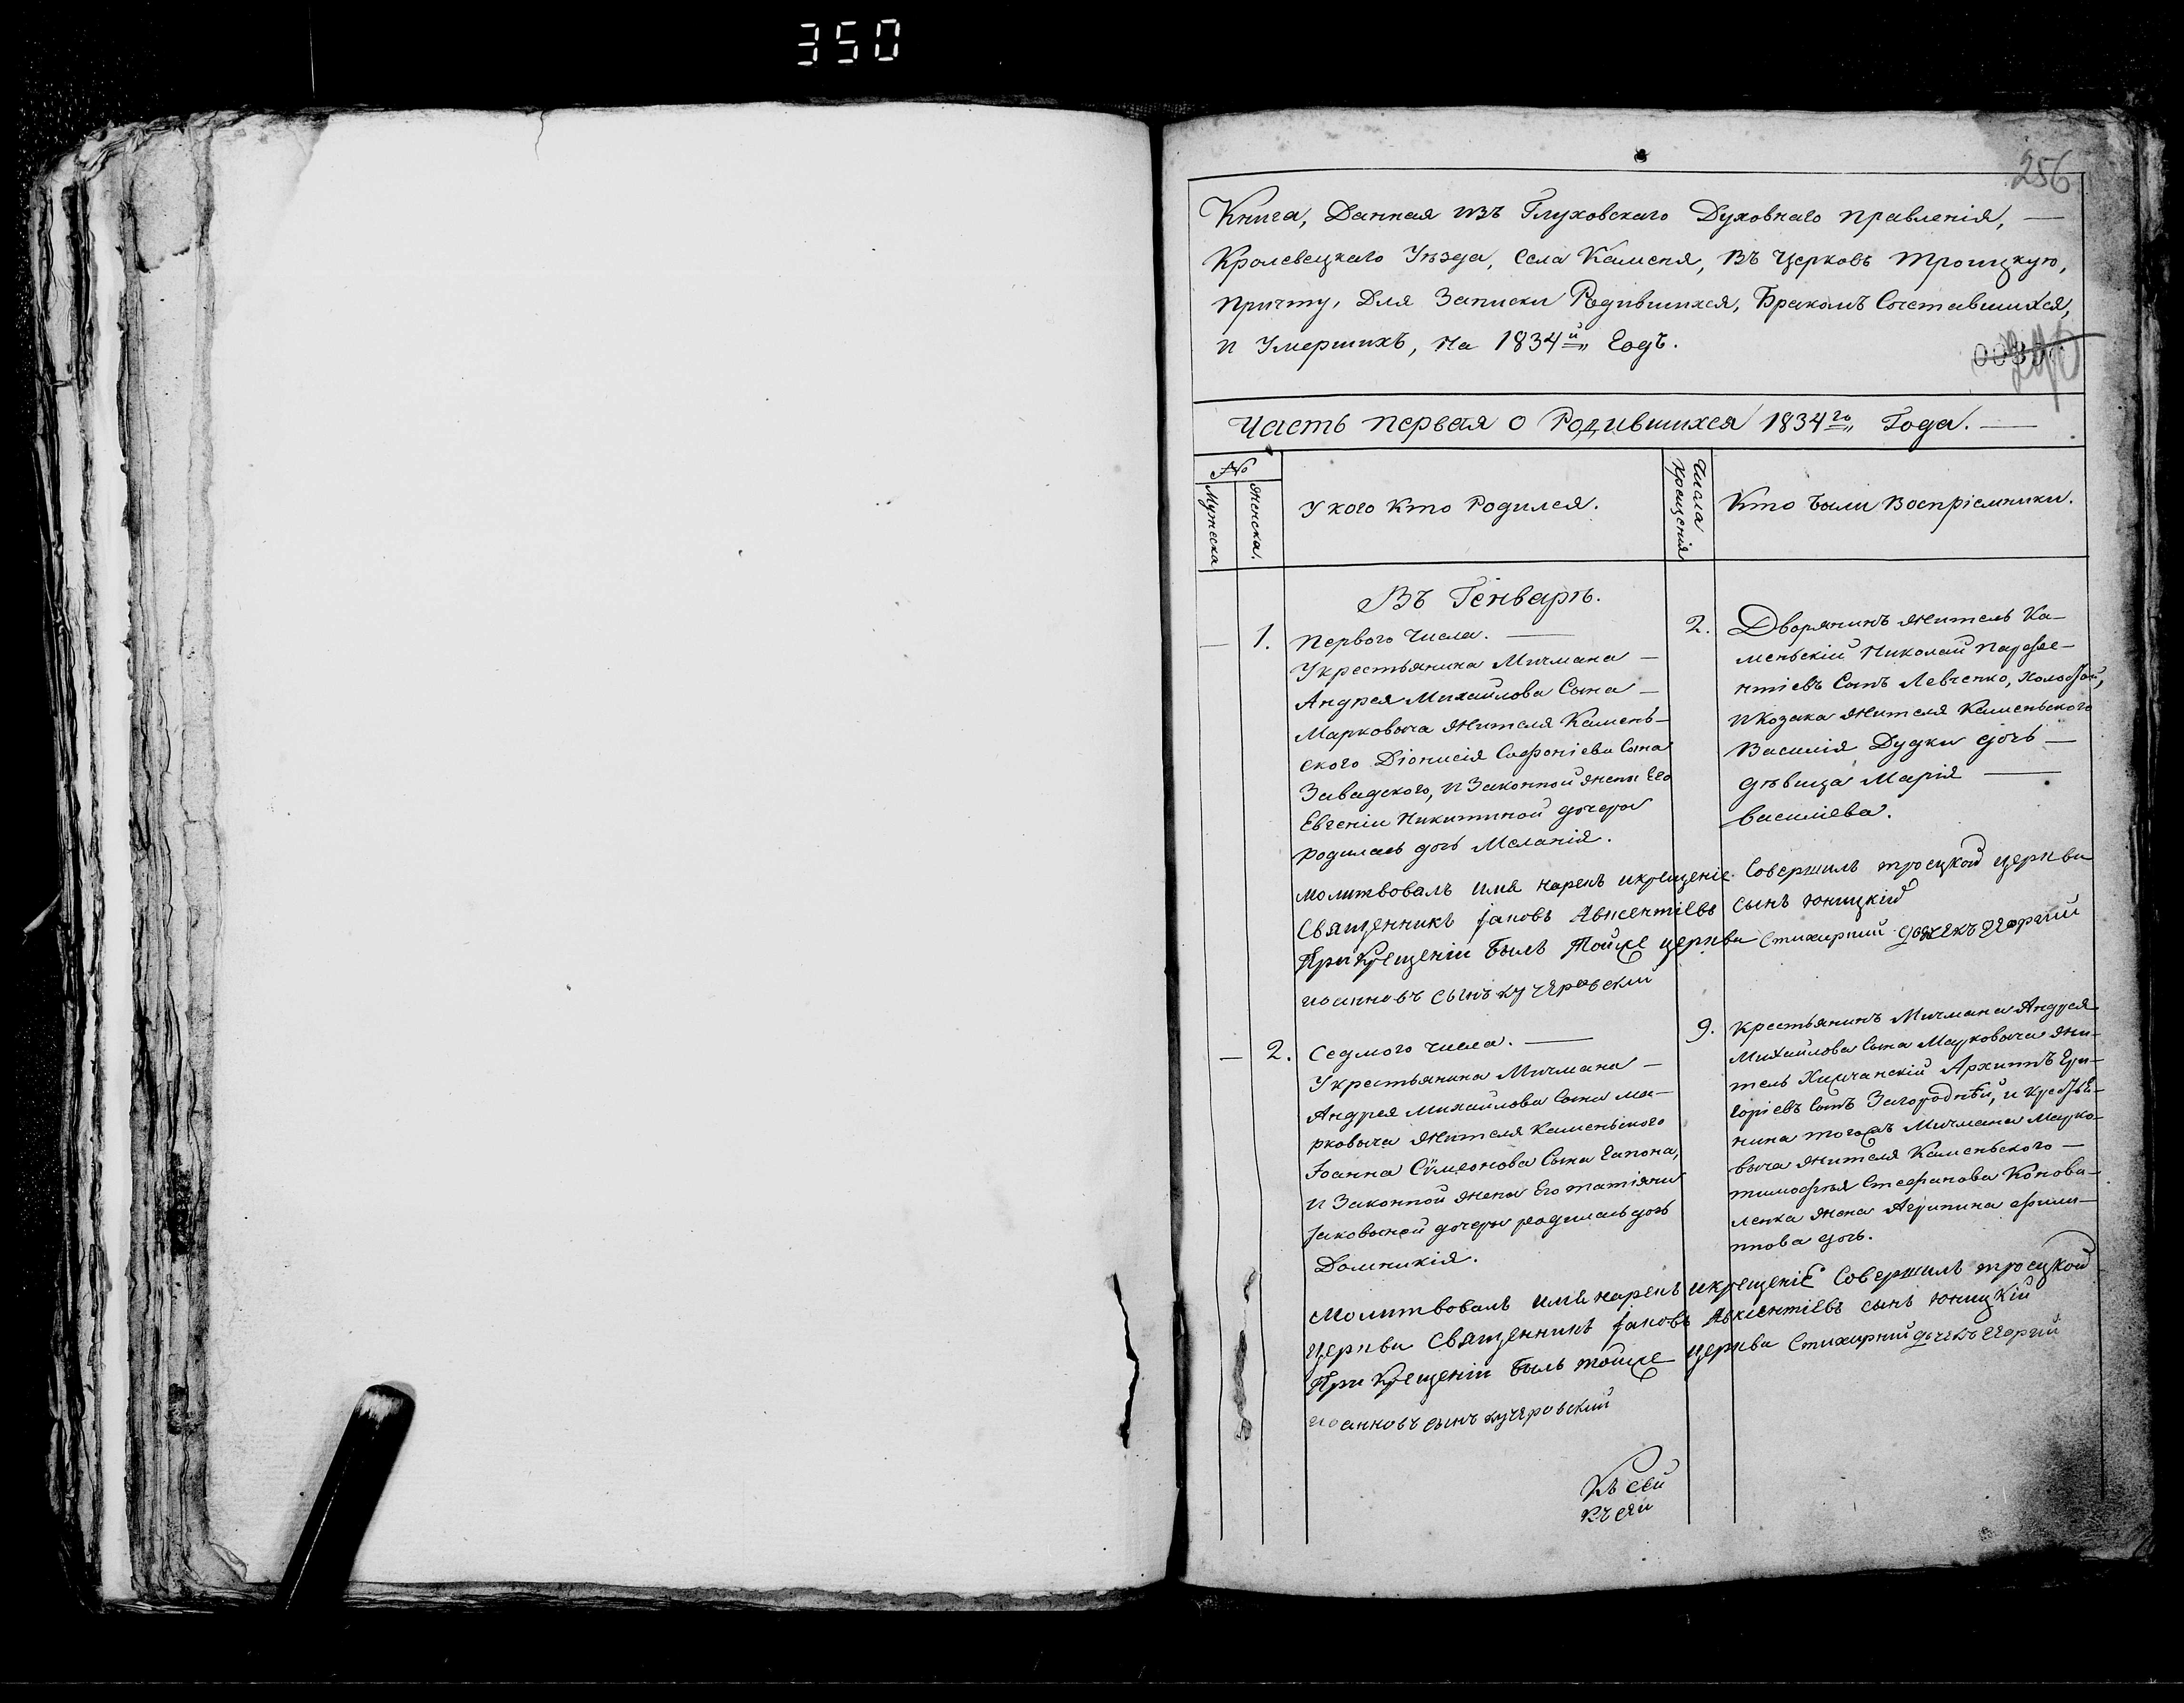 350
256
Книга, Данная изъ Глуховскаго Духовнаго правленія, —
Кролевецкаго Уѣзда, Села Каменя, Въ Церковь Троицкую,
причту, Для Записки Родившихся, Бракомъ Сочетавшихся,
и Умершихъ, на 1834й Годъ.
Часть первая о Родившихся 1834го Года. —
№
Мужеска
Женска.
У кого Кто Родился.
Числа Крещенія
Кто были Воспріемники.
Въ Генварѣ.
— 1. Первого Числа. —
У крестьянина Мичмана —
Андрея Михайлова Сына —
Марковича Жителя Камень-
ского Діонисія Софоніева Сына
Завадского, и Законной жены Его
Евгеніи Никитиной дочери
родилась дочь Меланія.
2. Дворянинъ Житель Ка-
меньскій Николай Парѳе-
нтіевъ Сынъ Левченко, Холостой,
и Козака Жителя Каменьского
Василія Дудки дочь —
дѣвица Марія —
Василіева.
Молитвовалъ имя нарекъ икрещеніе Совершилъ троецкой церкви
Священникъ Іаковъ Авксентіевъ сынъ Юницкій
При Крещеніи былъ Тойже церкви Стихарний дячекъ Георгий
иоанновъ сынъ кучеровский
— 2. Седмого числа. —
У крестьянина Мичмана —
Андрея Михайлова Сына Ма-
рковича Жителя Каменьского
Іоанна Сѵмеонова Сына Гапона,
и Законной жены Его татіяни
Іаковлевой дочери родилась дочь
Домникія.
9. Крестьянинъ Мичмана Андрея
Михайлова Сына Марковича Жи-
тель Архипъ Гри-
горіевъ Сынъ Загородній, и Крестья-
нина тогожъ Мичмана Марко-
вича Жителя Каменьского —
тимофѣя Стефанова Конова-
ленка жена Агрипина фили-
ппова дочь.
Молитвовалъ имя нарекъ икрещеніе Совершилъ троецкой
церкви Священникъ Іаковъ Авксентіевъ сынъ Юницкій
При Крещеніи былъ тойже церкви Стихарний дячекъ Георгий
иоанновъ сынъ кучеровский
Къ сей
Къ сей